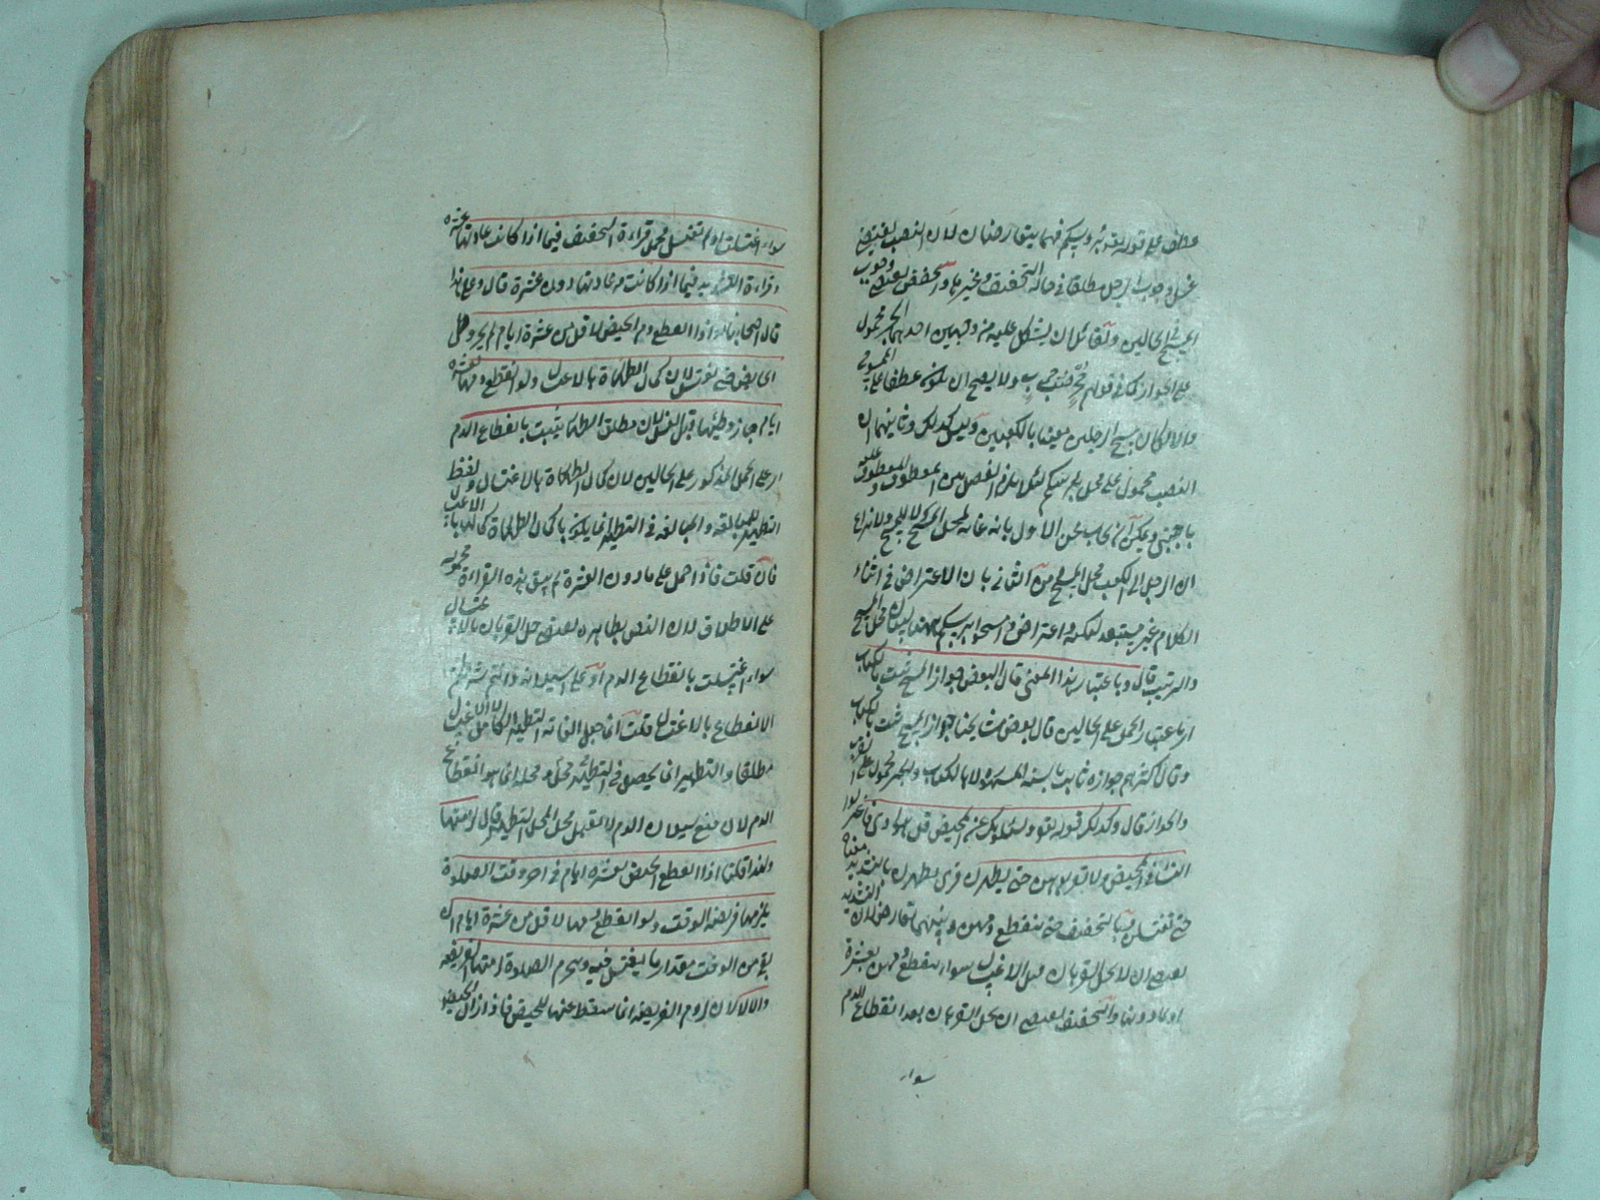 عطف على قوله برؤسكم فهما يتعارضان لان النصب يقتضي
غسل وجوب الرجل مطلقا في حالة التخفف وغيرها والخفض يقتضي وجوب
المسح في الحالين ولقائل ان يشكل عليه من وجهين احدهما الجر محمول
على الجوار كما في قولهم جحر ضب خرب ولا يصح ان يكون عطفا على الممسوح
والا لكان مسح الرجلين مغيا بالكعبين وليس كذلك وثانيهما ان
النصب محمول على محل برؤسكم لئلا يلزم الفصل بين المعطوف والمعطوف عليه
باجنبي ويمكن ان يجاب عن الاول بانه غاية لمحل المسح لا للمسح ولا نزاع
ان الرجل الى الكعب محل المسح وعن الثاني بان الاعتراض في اثناء
الكلام غير مستبعد لنكتة واعتراض وامسحوا برؤسكم ههنا لبيان محل المسح
والترتيب قال وباعتبار هذا المعنى قال البعض جواز المسح ثبت بالكتاب
اي باعتبار الحمل على الحالين قال بعض مشايخنا جواز المسح ثبت بالكتاب
وقال اكثرهم جوازه ثابت بالسنة المشهورة لا بالكتاب والجر محمول على القرب
والجوار قال وكذلك قوله تعالى ويسئلونك عن المحيض قل هو اذى فاعتزلوا
النساء في المحيض ولا تقربوهن حتى يطهرن قرئ يطهرن بالتشديد معناه
حتى تغتسلن وبالتخفيف حتى ينقطع دمهن وبينهما تعارض لان التشديد
يقتضي ان لا يحل القربان قبل الاغتسال سواء ينقطع دمهن بعشرة
او بما دونها والتخفيف يقتضي ان يحل القربان بعد انقطاع الدم
سواء
سواء اغتسلت او لم تغتسل فيحمل قراءة التخفيف فيما اذا كانت عادتها عشرة
وقراءة التشديد فيما اذا كانت من عادتها دون عشرة قال وعلى هذا
قال اصحابنا اذا انقطع دم الحيض لاقل من عشرة ايام لم يجز وطئ
الحائض حتى تغتسل لان كمال الطهارة بالاغتسال ولو انقطع دمها لعشرة
ايام جاز وطئها قبل الغسل لان مطلق الطهارة يثبت بانقطاع الدم
اي على الحمل المذكور على الحالين لان كمال الطهارة بالاغتسال ولفظ
التطهير للمبالغة والمبالغة في التطهير انما يكون بكمال الطهارة كمالها بالاغتسال
فان قلت فاذا حمل على ما دون العشرة لم يبق هذه القراءة مجموعة
على الاطلاق لان النص بظاهره يقتضي حل القربان بالاغتسال
سواء اغتسلت بانقطاع الدم او على السيلان والتم شرطتم
الانقطاع بالاغتسال قلت انما جعل الغاية التطهير الكامل لا الاغتسال
مطلقا والتطهير انما يحصل في التطهير محلا ومحله انما هو انقطاع
الدم لان مع سيلان الدم لا يقبل محل المحل التطهير قال ولهذا
ولهذا قلنا اذا انقطع الحيض بعشرة ايام في اخر وقت الصلوة
يلزمها فريضة الوقت ولو انقطع دمها لاقل من عشرة ايام ان
بقي من الوقت مقدار ما يغتسل فيه وتحرم الصلوة لزمتها الفريضة
والا لا لان لزوم الفريضة انما سقط عنها للحيض فاذا زال الحيض